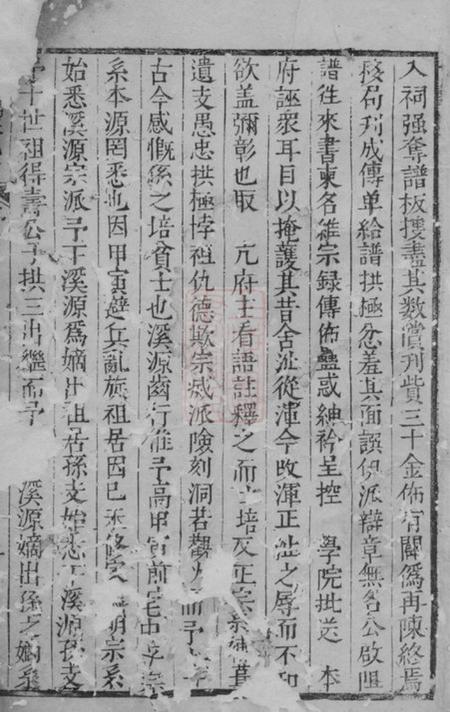 入祠强奪譜板搜盡其數賞刋費三十金佈有關為再陳終焉
移局刋成傳单給譜拱極忿羞其面誤伊派辯章無名公啟阻
譜徃來書柬名雖宗録傳佈蠱惑紳衿呈控 學院批送 本
府誣衆耳目以掩護其昔舍沚從渾今改渾正沚之辱而不知
欲盖彌彰也取 亢府主看語註釋之而 培反正宗
遺支愚忠拱極悖祖仇德欺宗滅派險刻洞若觀火而予
古今感慨係之培貧士也溪源齒行雖予高甲寅前宅中享宗
系本源罔悉也因甲寅避兵亂旋祖居因已未修 明宗系
始悉溪源宗派予于溪源為嫡出祖居孫支始悉于溪源孫支
十世祖得壽公子拱三出繼而予 溪源嫡出孫之嫡系